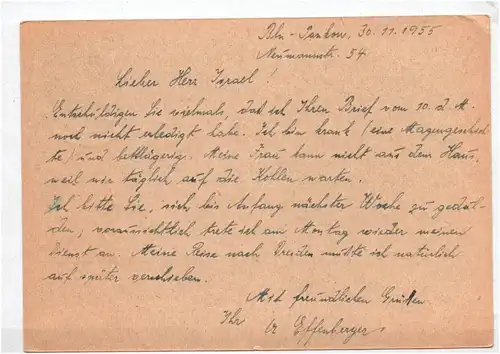 Bln-Pankow, 30.11.1955
Neumannstr. 54
Lieber Herr Israel!
Entschuldigen Sie vielmals, daß ich Ihren Brief vom 10. d. M.
noch nicht erledigt habe. Ich bin krank (eine Magengeschich-
te) und bettlägerig. Meine Frau kann nicht aus dem Haus,
weil wir täglich auf die Kohlen warten.
Ich bitte Sie, sich bis Anfang nächster Woche zu gedul-
den, voraussichtlich trete ich am Montag wieder meinen
Dienst an. Meine Reise nach Dresden mußte ich natürlich
auf später verschieben.
Mit freundlichen Grüßen
Ihr Effenberger